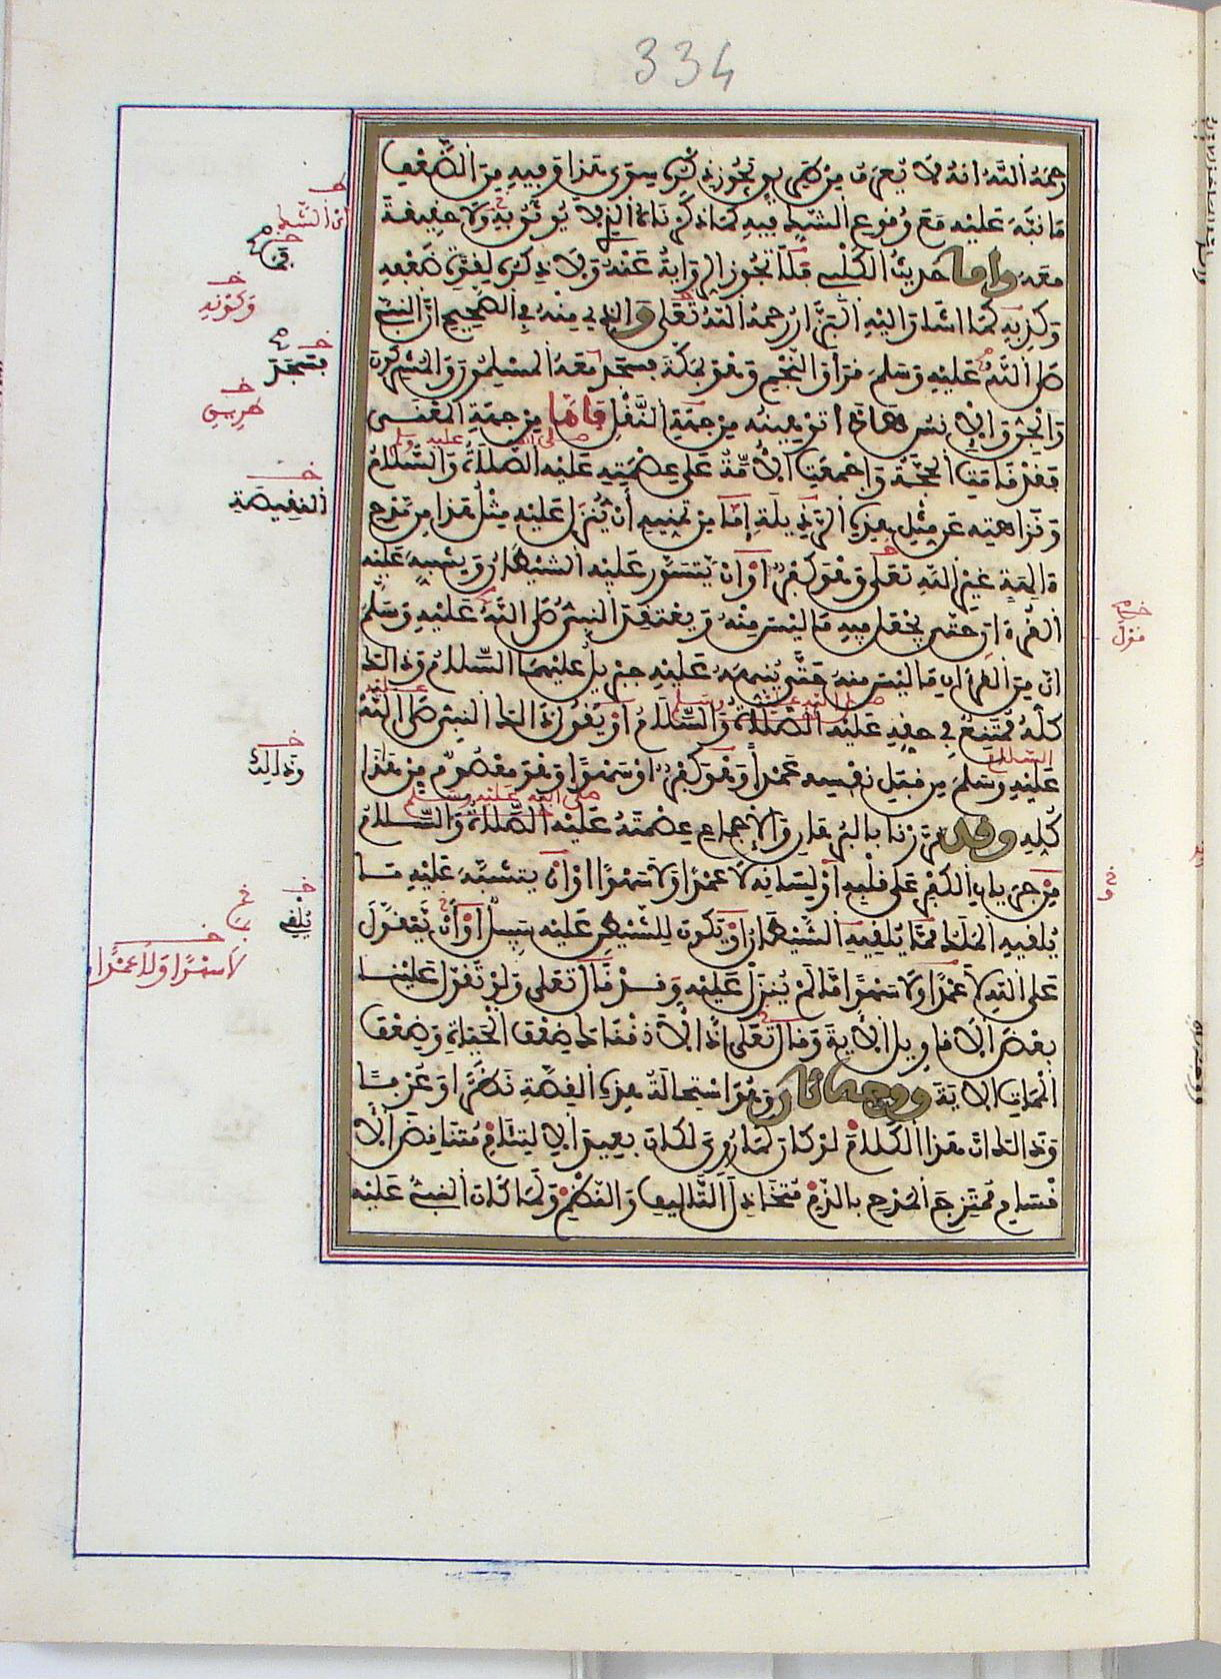 334
رحمه الله انه لا يعرف من طريق يجوز ذكره سوى هذا وفيه من الضعف
ما نبه عليه مع وقوع الشك فيه كما ذكرناه الذي لا يوثق به ولا حقيقة
معه واما حديث الكلبي فلا تجوز الرواية عنه ولا ذكره لقوة ضعفه
وكذبه كما اشار اليه البزار رحمه الله تعلى والذي منه في الصحيح ان النبي
صلى الله عليه وسلم قرأ والنجم وهو بمكة فسجد معه المسلمون والمشركون
والجن والانس هذا توهينه من جهة النقل فاما من جهة المعنى
فقد قامت الحجة واجمعت الامة على عصمته عليه الصلاة والسلام
ونزاهته عن مثل هذه الرذيلة إما من تمنيه أن ينزل عليه مثل هذا من مدح
ءالهة غير الله تعلى وهو كفر او ان يتسور عليه الشيطان ويشبه عليه
القرءان حتى يجعل فيه ما ليس منه ويعتقد النبي صلى الله عليه وسلم
ان من القرءان ما ليس منه حتى ينبهه عليه جبريل عليهما السلام وذالك
كله ممتنع في حقه عليه الصلاة والسلام او يقول ذالك النبي صلى الله
عليه وسلم من قبل نفسه عمدا وهو كفر او سهوا وهو معصوم من هذا
كله وقد قررنا بالبرهان والاجماع عصمته عليه الصلاة والسلام
من جريان الكفر على قلبه او لسانه لا عمدا ولا سهوا او ان يتشبه عليه ما
يلقيه الملك مما يلقيه الشيطان او يكون للشيطن عليه سبيل او أن يتقول
على الله لا عمدا ولا سهوا ما لم ينزل عليه وقد قال تعلى ولو تقول علينا
بعض الاقاويل الأية وقال تعلى اذا لأذقناك ضعف الحيوة وضعف
الممات الاية ووجه ثان وهو استحالة هذه القصة نظرا وعرفا
وذالك ان هذا الكلام لو كان كما روي لكان بعيد الالتئام متناقض الا
قسام ممتزج المدح بالذم متخاذل التأليف والنظم ولما كان النبي عليه
خـ
ان الشك
خـ
وكتونه
خـ
فسجد
خـ
خـ
النقيصة
خـ
وذالك
خـ
يلقى
خـ
لا سهوا ولا عمدا